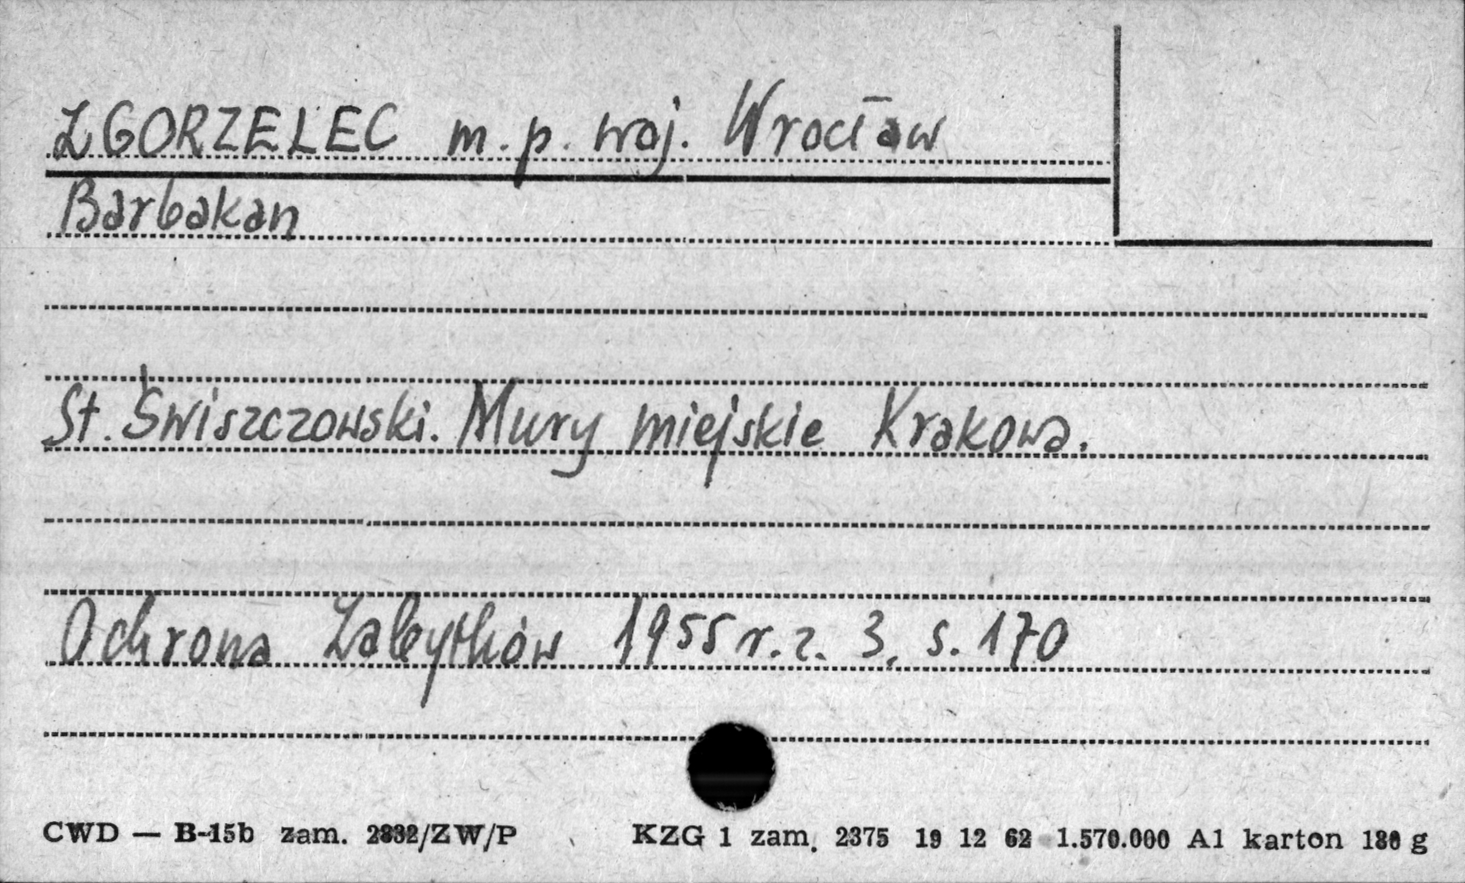 ZGORZELEC m.p. woj. Wrocław
Barbakan
St. Świszczowski. Mury miejskie Krakowa.
Ochrona Zabytków 1955 r. z. 3, s. 170
CWD — B-15b zam. 2832/ZW/P KZG 1 zam. 2375 19 12 62 1.570.000 A1 karton 180 g